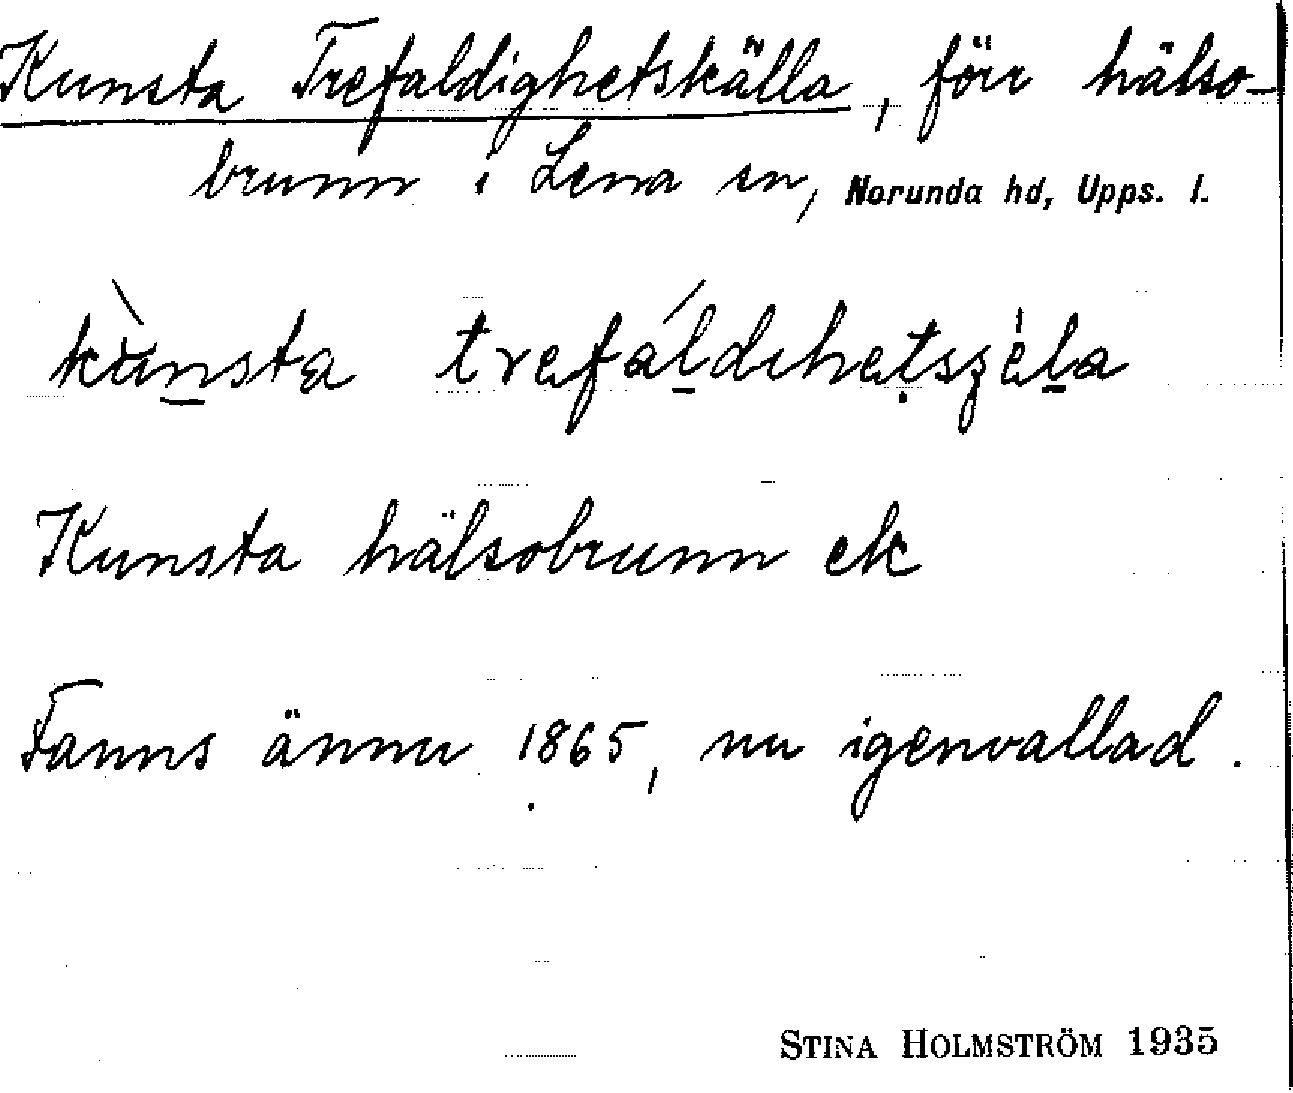 Kunsta Trefaldighetskälla, förr hälso-
brunn i Lena sn, Norunda hd, Upps. l.
kùn̲sta trefál̲dihetṣzèl̲a
Kunsta hälsobrunn ek
Fanns ännu 1865, nu igenvallad.
STINA HOLMSTRÖM 1935